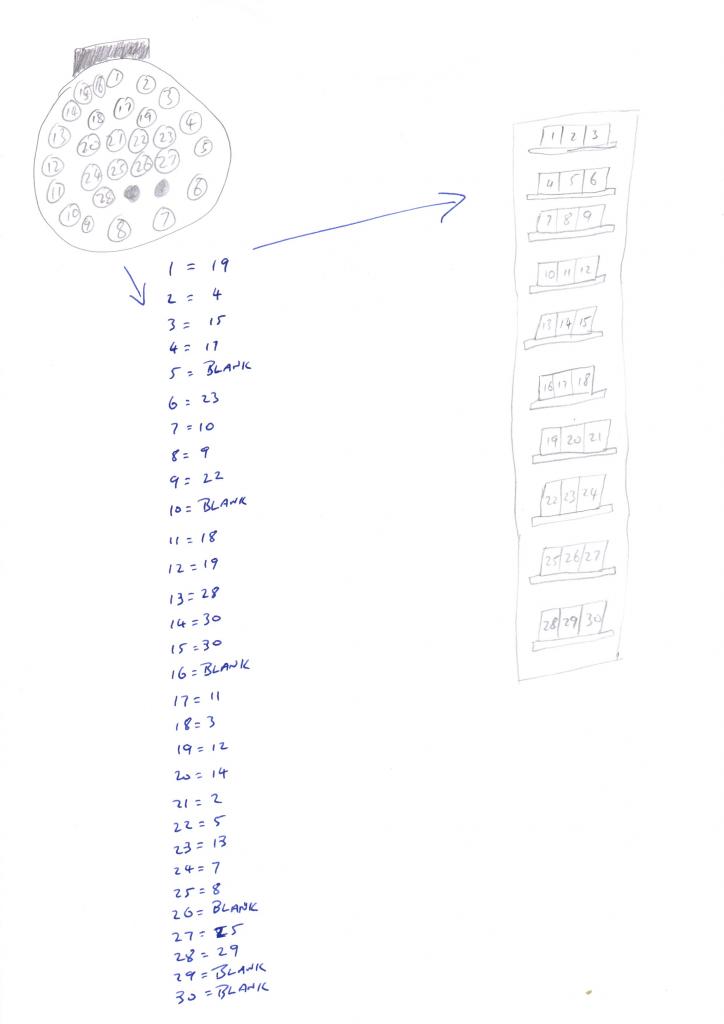 15 16 1 2
14 3
18 17 19 4
13 20 21 22 23 5
12 24 25 26 27
11 28 6
10 9 8 7
1 = 19
2 = 4
3 = 15
4 = 17
5 = BLANK
6 = 23
7 = 10
8 = 9
9 = 22
10 = BLANK
11 = 18
12 = 19
13 = 28
14 = 30
15 = 30
16 = BLANK
17 = 11
18 = 3
19 = 12
20 = 14
21 = 2
22 = 5
23 = 13
24 = 7
25 = 8
26 = BLANK
27 = 25
28 = 29
29 = BLANK
30 = BLANK
1 2 3
4 5 6
7 8 9
10 11 12
13 14 15
16 17 18
19 20 21
22 23 24
25 26 27
28 29 30